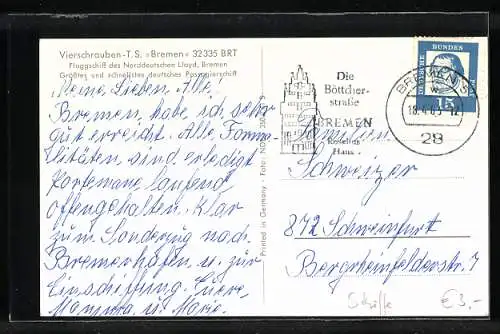 Vierschrauben-T.S. »Bremen« 32 335 BRT
Flaggschiff des Norddeutschen Lloyd, Bremen
Größtes und schnellstes deutsches Passagierschiff
Meine Lieben Alle,
Bremen habe ich sehr
gut erreicht. Alle Forma-
litäten sind erledigt
Portemane laufend
offengehalten. Klar
zum Sonderzug nach
Bremerhafen u. zur
Einschiffung. Eure
u. Marie.
Printed in Germany · Foto: NDL
Die
Böttcher-
straße
BREMEN
Roselius
Haus
BREMEN 5
18.4.63-12
28
DEUTSCHE BUNDESPOST
15
Familien
Schweizer
872 Schweinfurt
Bergrheinfelderstr. 7
Schiffe
€ 3,-